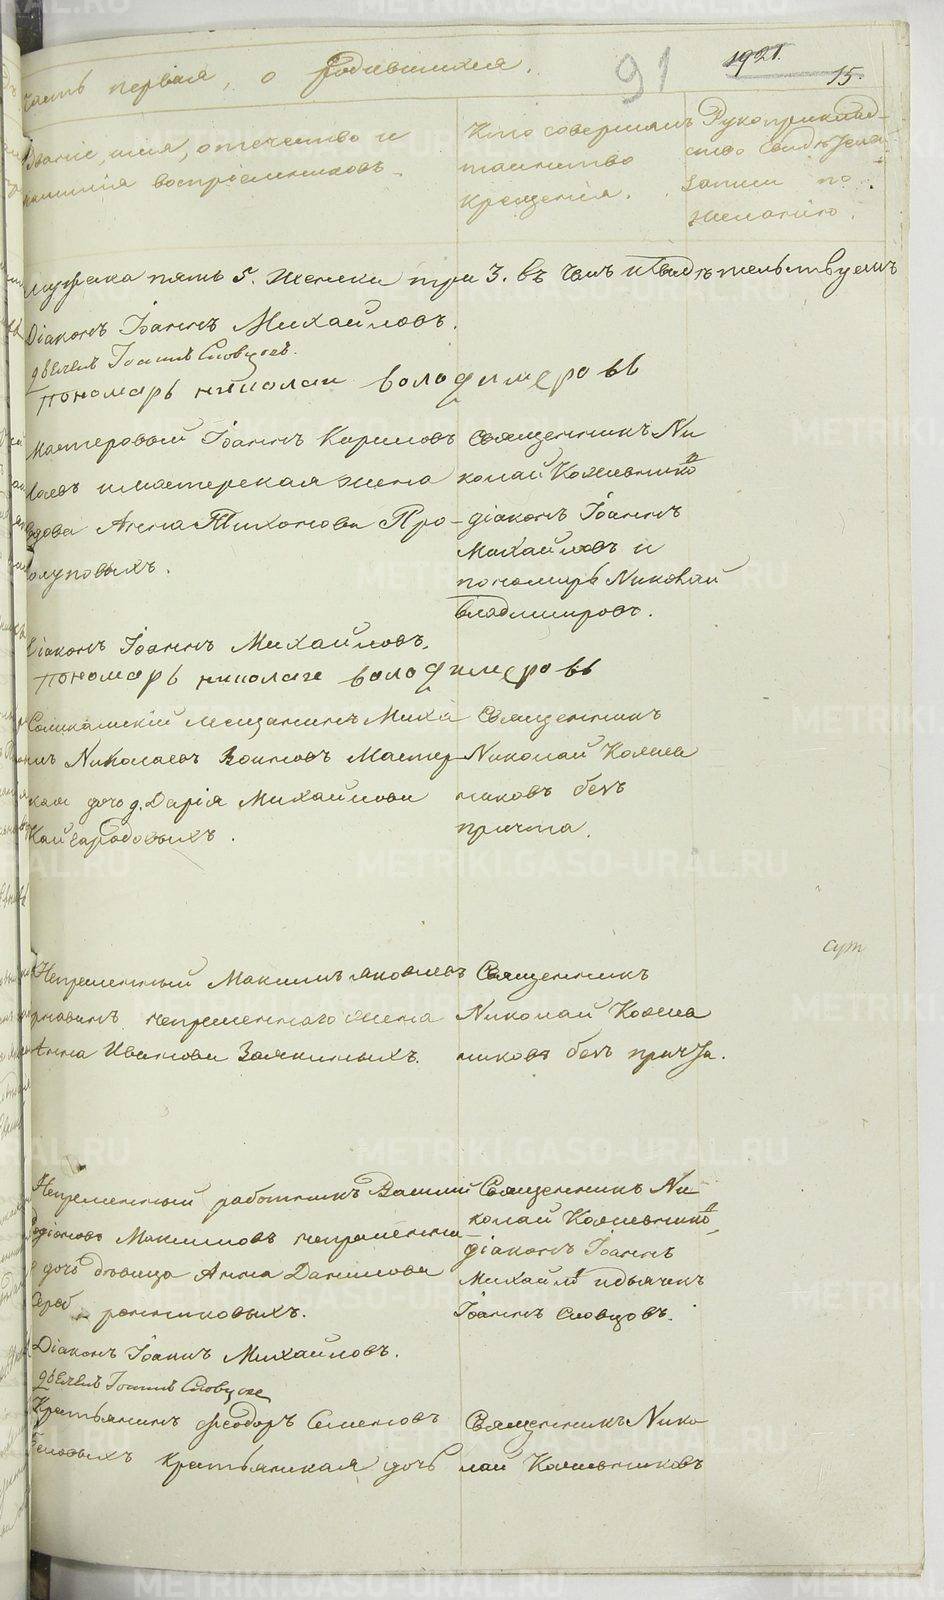 часть первая, о родившихся.
91
1921.
15.
Званіе, имя, отечество и
фамилія воспріемниковъ.
Кто совершалъ
таинство
крещенія.
Рукоприклад-
ство свидѣтелей
записи по
желанію.
мужска пять 5. женска три 3. въ чемъ и свидѣтельствуемъ
Діаконъ Іоаннъ Михайловъ.
дьячекъ Іоаннъ Словцовъ.
пономарь николаи володимеровъ
Мастеровый Іоаннъ Кириловъ
лаевъ и мастерская жена
вдова Анна Тихонова Про-
олуповыхъ.
Священникъ Ни
колай Кожевниковъ
діаконъ Іоаннъ
Михайловъ и
пономарь Николай
Владимировъ.
Діаконъ Іоаннъ Михайловъ.
пономарь николаи володимеровъ
Соликамскій мещанинъ Миха
илъ Николаевъ Воиновъ Мастер-
ская дочь д. Дарія Михайлова
Кайгародовыхъ.
Священникъ
Николай Кожев
никовъ безъ
причта.
сут
Непременный Максимъ яковлевъ
непременнаго жена
Анна Иванова Заякиныхъ.
Священникъ
Николай Кожев
никовъ безъ причта.
Непременный работникъ Василий
Родіоновъ Максимовъ непременна
дочь дѣвица Анна Данилова
Сереб ренниковыхъ.
Священникъ Ни
колай Кожевников
діаконъ Іоаннъ
Михайл и дьячекъ
Іоаннъ Словцовъ.
Діаконъ Іоаннъ Михайловъ.
дьячекъ Іоаннъ Словцовъ
Крестьянинъ Феодоръ Семеновъ
Беловыхъ крестьянская дочь
Священникъ Нико
лай Кожевниковъ
METRIKI.GASO-URAL.RU